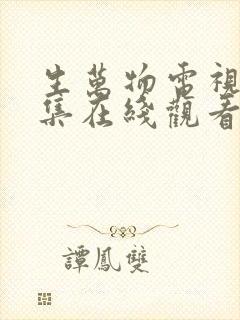 生萬物電視
集在綫觀看
譚鳳雙